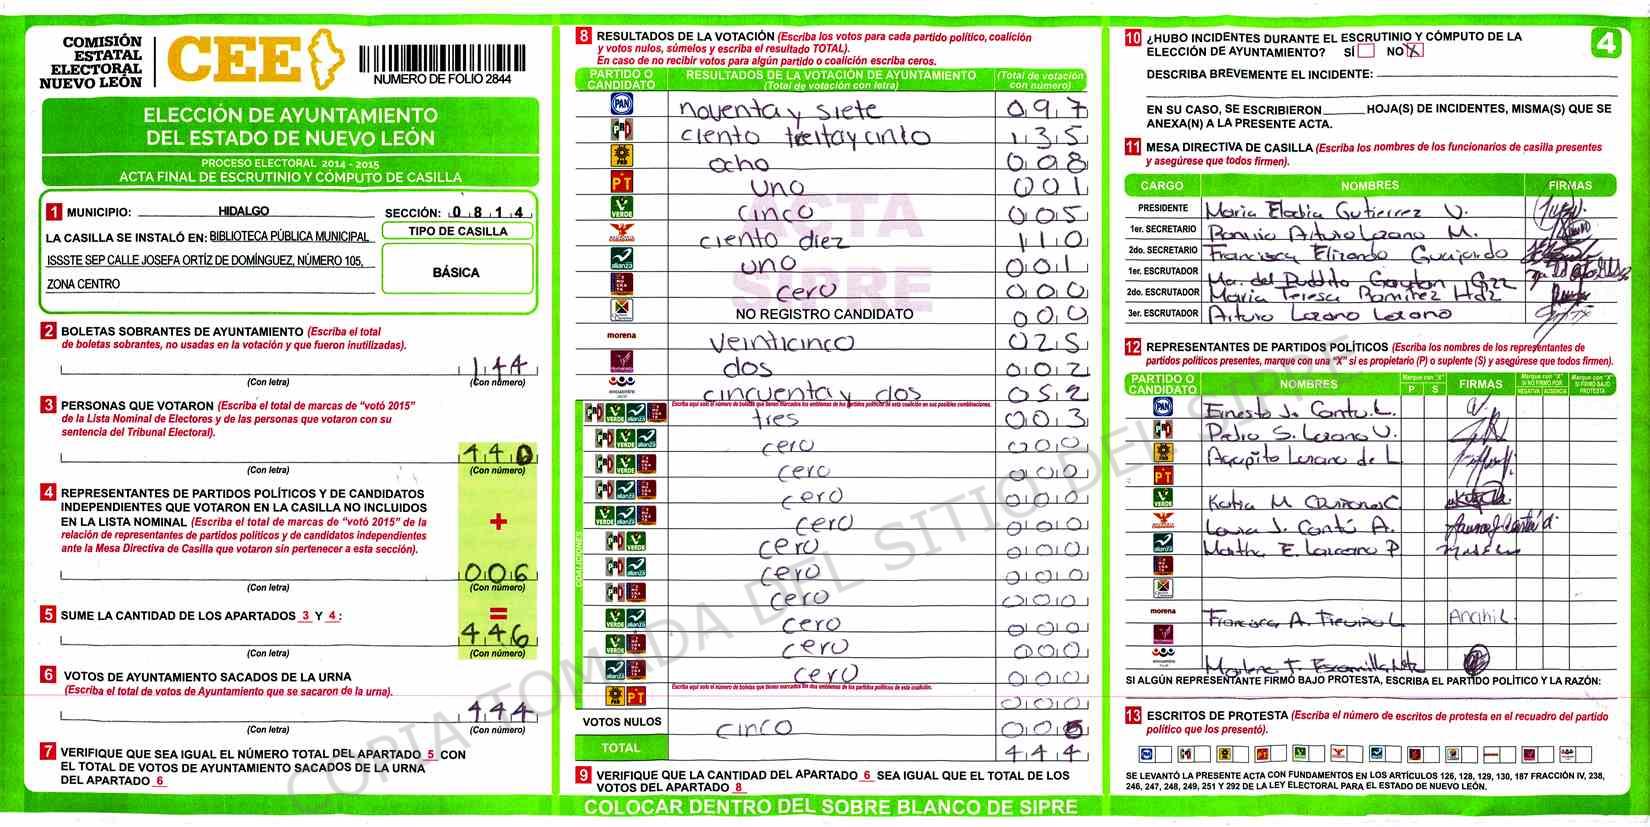 COMISIÓN
ESTATAL
ELECTORAL
NUEVO LEÓN
CEE
NUMERO DE FOLIO 2844
ELECCIÓN DE AYUNTAMIENTO
DEL ESTADO DE NUEVO LEÓN
PROCESO ELECTORAL 2014 - 2015
ACTA FINAL DE ESCRUTINIO Y CÓMPUTO DE CASILLA
1 MUNICIPIO: HIDALGO SECCIÓN: 0814
LA CASILLA SE INSTALÓ EN: BIBLIOTECA PÚBLICA MUNICIPAL
ISSSTE SEP CALLE JOSEFA ORTÍZ DE DOMÍNGUEZ, NÚMERO 105,
ZONA CENTRO
TIPO DE CASILLA
BÁSICA
2 BOLETAS SOBRANTES DE AYUNTAMIENTO (Escriba el total
de boletas sobrantes, no usadas en la votación y que fueron inutilizadas).
144
(Con letra) (Con número)
3 PERSONAS QUE VOTARON (Escriba el total de marcas de "votó 2015"
de la Lista Nominal de Electores y de las personas que votaron con su
sentencia del Tribunal Electoral).
440
(Con letra) (Con número)
4 REPRESENTANTES DE PARTIDOS POLÍTICOS Y DE CANDIDATOS
INDEPENDIENTES QUE VOTARON EN LA CASILLA NO INCLUIDOS
EN LA LISTA NOMINAL (Escriba el total de marcas de "votó 2015" de la
relación de representantes de partidos políticos y de candidatos independientes
ante la Mesa Directiva de Casilla que votaron sin pertenecer a esta sección).
+
006
(Con letra) (Con número)
5 SUME LA CANTIDAD DE LOS APARTADOS 3 Y 4: =
446
(Con letra) (Con número)
6 VOTOS DE AYUNTAMIENTO SACADOS DE LA URNA
(Escriba el total de votos de Ayuntamiento que se sacaron de la urna).
444
(Con letra) (Con número)
7 VERIFIQUE QUE SEA IGUAL EL NÚMERO TOTAL DEL APARTADO 5 CON
EL TOTAL DE VOTOS DE AYUNTAMIENTO SACADOS DE LA URNA
DEL APARTADO 6
8 RESULTADOS DE LA VOTACIÓN (Escriba los votos para cada partido político, coalición
y votos nulos, súmelos y escriba el resultado TOTAL).
En caso de no recibir votos para algún partido o coalición escriba ceros.
PARTIDO O CANDIDATO RESULTADOS DE LA VOTACIÓN DE AYUNTAMIENTO (Total de votación con letra) (Total de votación con número)
PAN noventa y siete 097
PRI ciento treitaycinco 135
PRD ocho 008
PT uno 001
VERDE cinco 005
ciento diez 110
alianza uno 001
cero 000
NO REGISTRO CANDIDATO 000
morena veinticinco 025
dos 002
encuentro cincuenta y dos 052
COALICIONES
Escriba aquí solo el número de boletas que tienen marcados los emblemas de los partidos políticos de esta coalición en sus posibles combinaciones.
tres 003
cero 000
cero 000
cero 000
cero 000
cero 000
cero 000
cero 000
cero 000
cero 000
cero 000
Escriba aquí solo el número de boletas que tienen marcados los dos emblemas de los partidos políticos de esta coalición.
PRD PT 000
VOTOS NULOS cinco 005
TOTAL 444
9 VERIFIQUE QUE LA CANTIDAD DEL APARTADO 6 SEA IGUAL QUE EL TOTAL DE LOS
VOTOS DEL APARTADO 8
COLOCAR DENTRO DEL SOBRE BLANCO DE SIPRE
ACTA
SIPRE
COPIA TOMADA DEL SITIO DEL SIPRE
4
10 ¿HUBO INCIDENTES DURANTE EL ESCRUTINIO Y CÓMPUTO DE LA
ELECCIÓN DE AYUNTAMIENTO? SÍ NO X
DESCRIBA BREVEMENTE EL INCIDENTE:
EN SU CASO, SE ESCRIBIERON HOJA(S) DE INCIDENTES, MISMA(S) QUE SE
ANEXA(N) A LA PRESENTE ACTA.
11 MESA DIRECTIVA DE CASILLA (Escriba los nombres de los funcionarios de casilla presentes
y asegúrese que todos firmen).
CARGO NOMBRES FIRMAS
PRESIDENTE Maria Elodia Gutierrez V.
1er. SECRETARIO Ramiro Arturo Lozano M.
2do. SECRETARIO Francisca Elizondo Guajardo
1er. ESCRUTADOR Ma. del
2do. ESCRUTADOR Maria Teresa Ramirez Hdz
3er. ESCRUTADOR Arturo Lozano Lozano
12 REPRESENTANTES DE PARTIDOS POLÍTICOS (Escriba los nombres de los representantes de
partidos políticos presentes, marque con una "X" si es propietario (P) o suplente (S) y asegúrese que todos firmen).
PARTIDO O CANDIDATO NOMBRES Marque con "X" P S FIRMAS Marque con "X" SI NO FIRMÓ POR NEGATIVA AUSENCIA Marque con "X" SI FIRMÓ BAJO PROTESTA
PAN Ernesto J. Cantu L.
PRI Pedro S. Lozano V.
PRD Agapito Lozano de L.
PT
VERDE Katia M
Laura J. Cantú A.
alianza Martha E. Lozano P
morena Francisca A. Treviño L
encuentro Marlene T. Escamilla
SI ALGÚN REPRESENTANTE FIRMÓ BAJO PROTESTA, ESCRIBA EL PARTIDO POLÍTICO Y LA RAZÓN:
13 ESCRITOS DE PROTESTA (Escriba el número de escritos de protesta en el recuadro del partido
político que los presentó).
SE LEVANTÓ LA PRESENTE ACTA CON FUNDAMENTOS EN LOS ARTÍCULOS 126, 128, 129, 130, 187 FRACCIÓN IV, 238,
246, 247, 248, 249, 251 Y 292 DE LA LEY ELECTORAL PARA EL ESTADO DE NUEVO LEÓN.